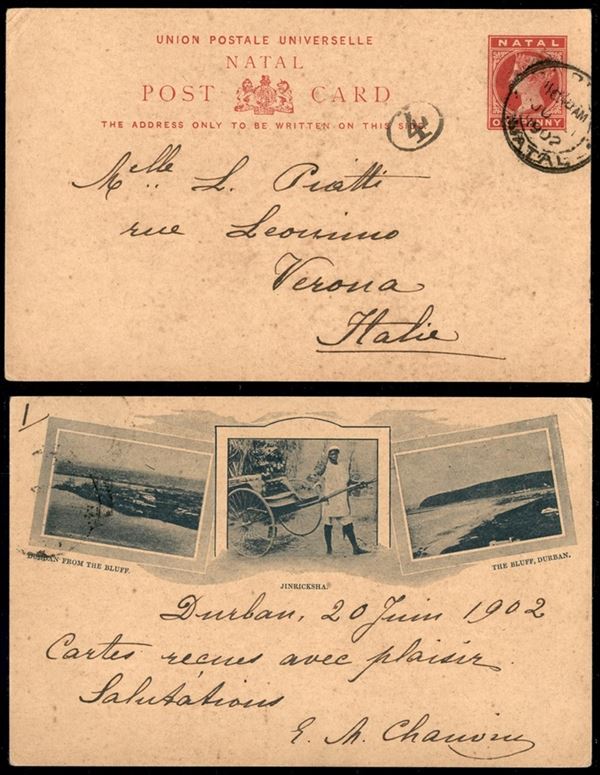 UNION POSTALE UNIVERSELLE
NATAL
POST CARD
THE ADDRESS ONLY TO BE WRITTEN ON THIS SIDE
NATAL
ONE PENNY
1902
NATAL
Melle L. Piatti
rue Leoncino
Verona
Italie
1
DURBAN FROM THE BLUFF.
JINRICKSHA.
THE BLUFF, DURBAN.
Durban, 20 Juin 1902
Cartes reçues avec plaisir
Salutations
E. M.